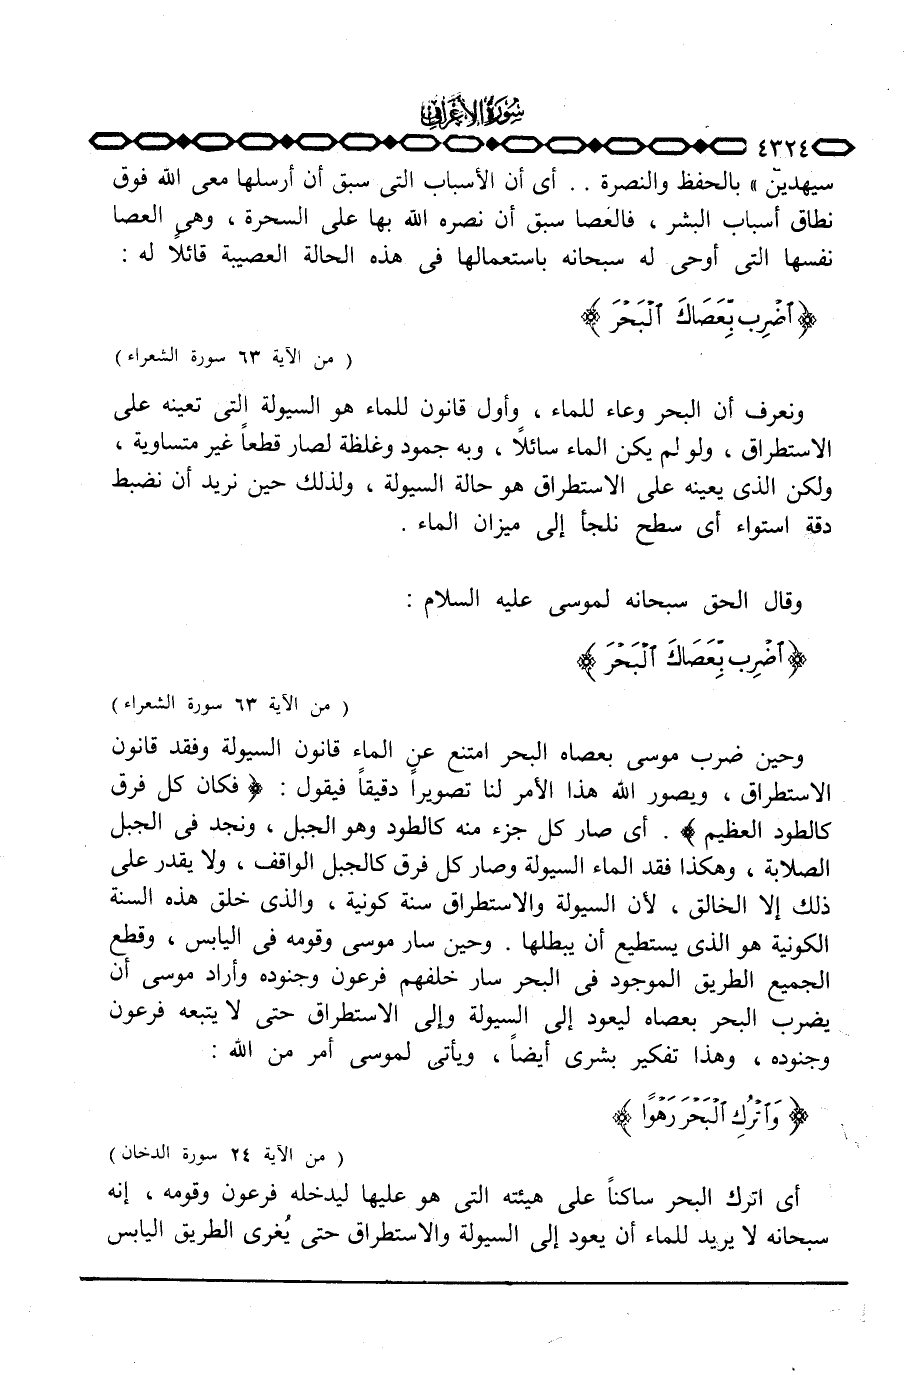 سورة الأعراف
٤٣٢٤
سيهدين » بالحفظ والنصرة . . أى أن الأسباب التى سبق أن أرسلها معى الله فوق
نطاق أسباب البشر ، فالعَصا سبق أن نصره الله بها على السحرة ، وهى العصا
نفسها التى أوحى له سبحانه باستعمالها فى هذه الحالة العصيبة قائلاً له :
﴿ ٱضْرِب بِّعَصَاكَ ٱلْبَحْرَ ﴾
( من الآية ٦٣ سورة الشعراء )
ونعرف أن البحر وعاء للماء ، وأول قانون للماء هو السيولة التى تعينه على
الاستطراق ، ولو لم يكن الماء سائلاً ، وبه جمود وغلظة لصار قطعاً غير متساوية ،
ولكن الذى يعينه على الاستطراق هو حالة السيولة ، ولذلك حين نريد أن نضبط
دقة استواء أى سطح نلجأ إلى ميزان الماء .
وقال الحق سبحانه لموسى عليه السلام :
﴿ ٱضْرِب بِّعَصَاكَ ٱلْبَحْرَ ﴾
( من الآية ٦٣ سورة الشعراء )
وحين ضرب موسى بعصاه البحر امتنع عن الماء قانون السيولة وفقد قانون
الاستطراق ، ويصور الله هذا الأمر لنا تصويراً دقيقاً فيقول : ﴿ فكان كل فرق
كالطود العظيم ﴾ . أى صار كل جزء منه كالطود وهو الجبل ، ونجد فى الجبل
الصلابة ، وهكذا فقد الماء السيولة وصار كل فرق كالجبل الواقف ، ولا يقدر على
ذلك إلا الخالق ، لأن السيولة والاستطراق سنة كونية ، والذى خلق هذه السنة
الكونية هو الذى يستطيع أن يبطلها . وحين سار موسى وقومه فى اليابس ، وقطع
الجميع الطريق الموجود فى البحر سار خلفهم فرعون وجنوده وأراد موسى أن
يضرب البحر بعصاه ليعود إلى السيولة وإلى الاستطراق حتى لا يتبعه فرعون
وجنوده ، وهذا تفكير بشرى أيضاً ، ويأتى لموسى أمر من الله :
﴿ وَٱتْرُكِ ٱلْبَحْرَ رَهْوًا ﴾
( من الآية ٢٤ سورة الدخان )
أى اترك البحر ساكناً على هيئته التى هو عليها ليدخله فرعون وقومه ، إنه
سبحانه لا يريد للماء أن يعود إلى السيولة والاستطراق حتى يُغرى الطريق اليابس